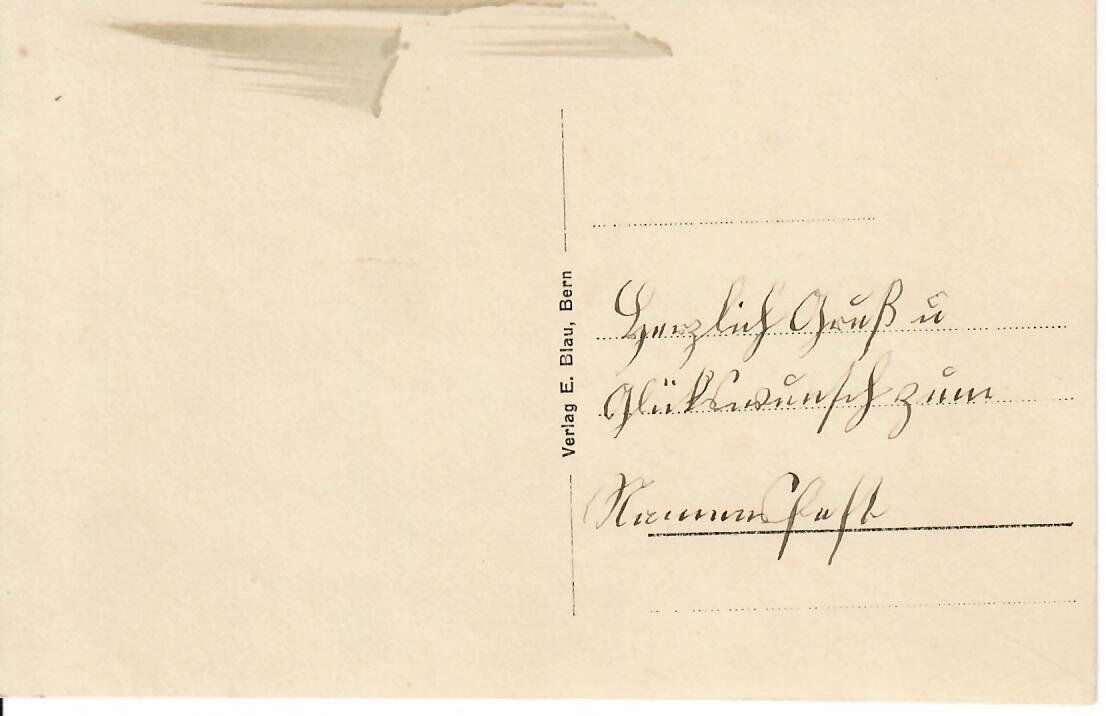 Verlag E. Blau, Bern
Herzlich Gruß u
Glükswunsch zum
Namensfest